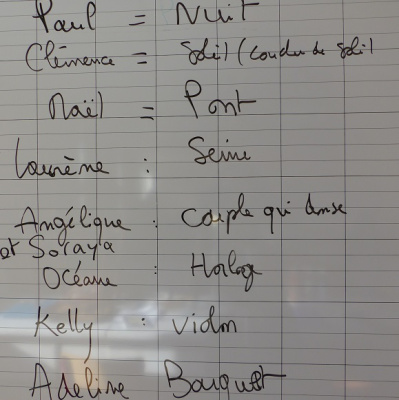 Paul = Nuit
Clémence = Soleil (coucher de soleil
Maël = Pont
Lourène : Seine
Angélique : couple qui danse
et Soraya
Océane : Horloge
Kelly :
Adeline Bouquet